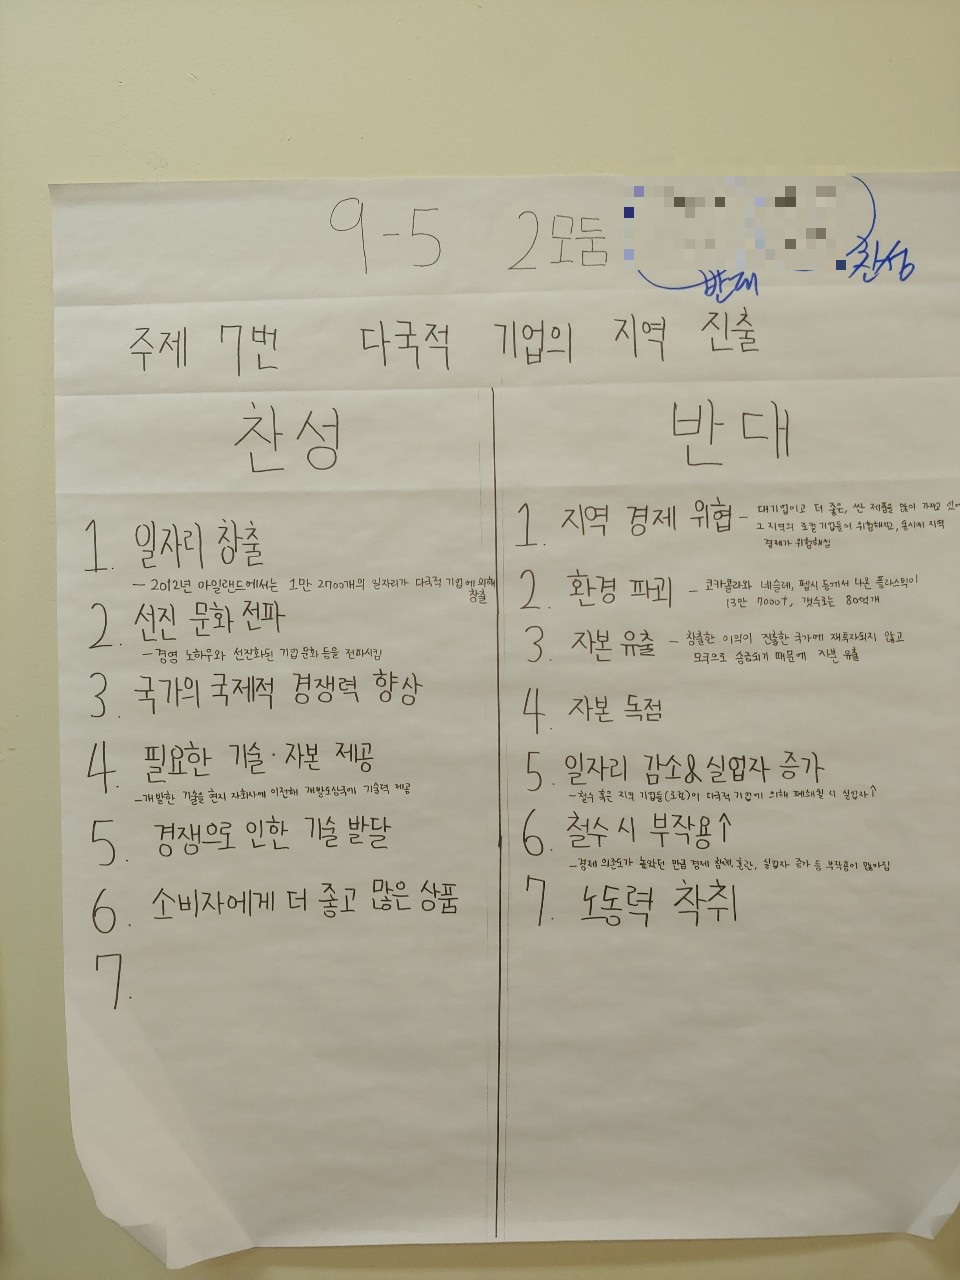 9-5 2모둠
반대 찬성
주제 7번 다국적 기업의 지역 진출
찬성
1. 일자리 창출
- 2012년 아일랜드에서는 1만 2700개의 일자리가 다국적 기업에 의해
창출
2. 선진 문화 전파
- 경영 노하우와 선진화된 기업 문화 등을 전파시킴
3. 국가의 국제적 경쟁력 향상
4. 필요한 기술·자본 제공
- 개발한 기술을 현지 자회사에 이전해 개발도상국에 기술력 제공
5. 경쟁으로 인한 기술 발달
6. 소비자에게 더 좋고 많은 상품
7.
반대
1. 지역 경제 위협 - 대기업이고 더 좋은, 싼 제품을 많이 가지고 있
그 지역의 로컬 기업들이 위협해지고, 동시에 지역
경제가 위험해짐
2. 환경 파괴 - 코카콜라와 네슬레, 펩시 등에서 나온 플라스틱이
13만 7000t, 갯수로는 80억개
3. 자본 유출 - 창출한 이익이 진출한 국가에 재투자되지 않고
모국으로 송금되기 때문에 자본 유출
4. 자본 독점
5. 일자리 감소&실업자 증가
- 철수 혹은 지역 기업들(로컬)이 다국적 기업에 의해 폐쇄될 시 실업자↑
6. 철수 시 부작용↑
- 경제 의존도가 높았던 만큼 경제 침체, 혼란, 실업자 증가 등 부작용이 많아짐
7. 노동력 착취